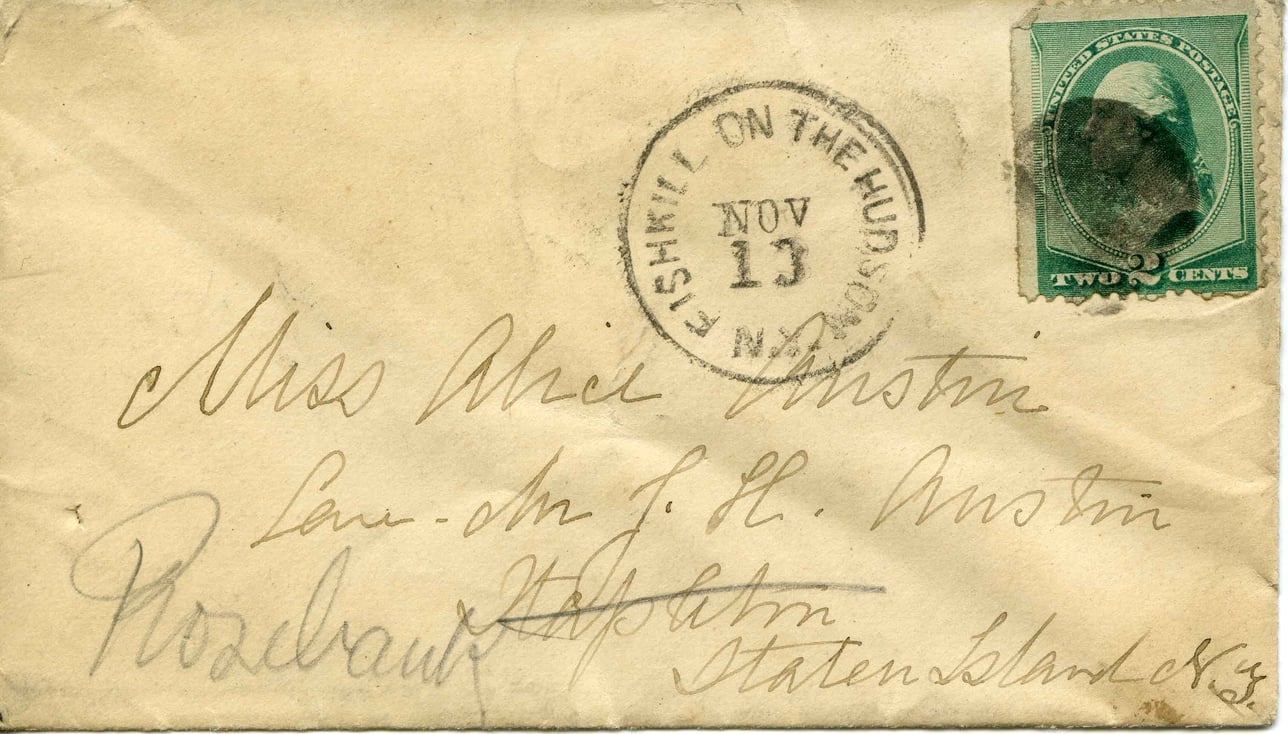 UNITED STATES POSTAGE
TWO 2 CENTS
FISHKILL ON THE HUDSON N.Y.
NOV
13
Miss Alice Austin
Care - Mr J. H. Austin
Stapleton
Rosebank
Staten Island N.Y.